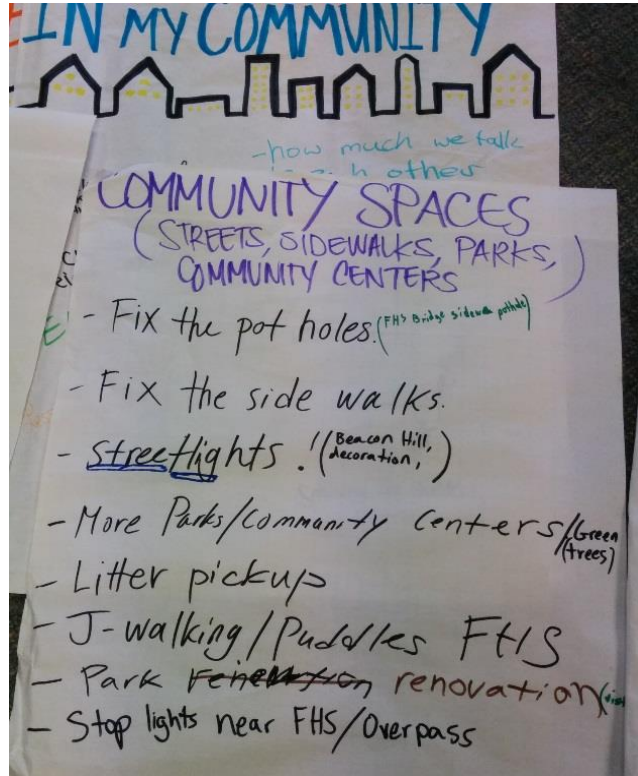 IN MY COMMUNITY
-how much we talk
other
COMMUNITY SPACES
(STREETS, SIDEWALKS, PARKS,
COMMUNITY CENTERS)
- Fix the pot holes. (FHS Bridge sidewalk pothole)
- Fix the side walks.
- Streetlights.! (Beacon Hill,
decoration, )
- More Parks/Community Centers/Green
(trees)
- Litter pickup
- J-walking/Puddles FHS
- Park renovation
- Stop lights near FHS/Overpass